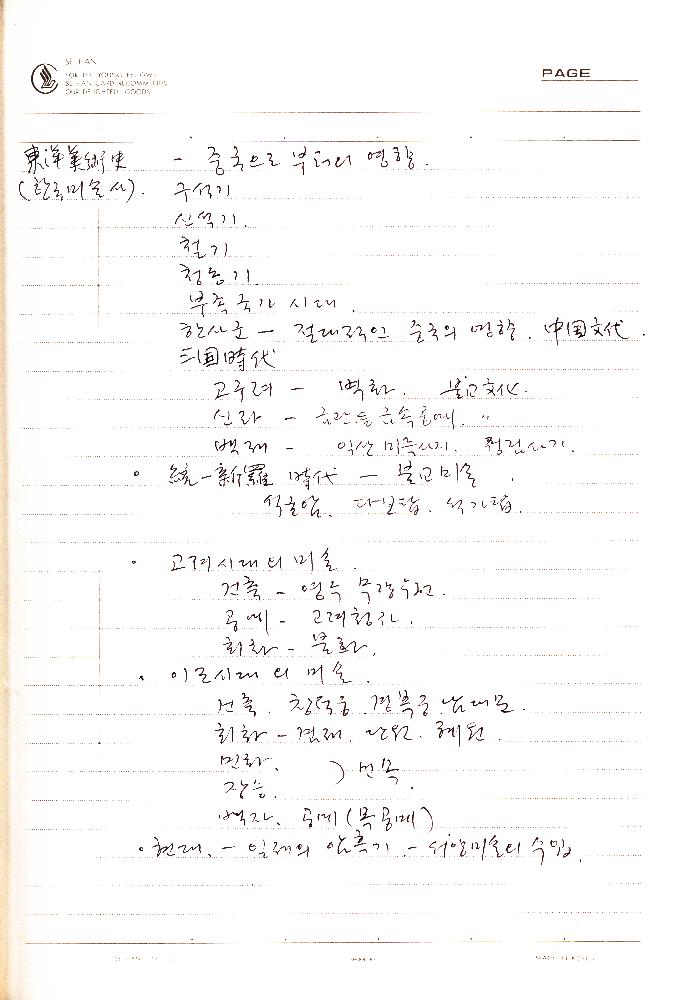 SE HAN
FOR THE YOUNG FELLOWS
SE HAN CARD RECOMMENDS
OUR DELIGHTFUL GOODS
PAGE
東洋美術史 - 중국으로 부터의 영향.
(한국미술사). 구석기
신석기.
철기
청동기.
부족국가 시대.
한사군 - 절대적인 중국의 영향. 中国文化.
三国時代
고구려 - 벽화. 불교文化.
신라 - 금관 등 금속공예. 〃
백제 - 익산 미륵사지. 정림사지.
• 統一新羅 時代 - 불교미술.
석굴암. 다보탑. 석가탑.
• 고려시대의 미술.
건축 - 영주 무량수전.
공예 - 고려청자.
회화 - 불화.
• 이조시대의 미술.
건축. 창덕궁. 경복궁. 남대문.
회화 - 겸재. 단원. 혜원.
민화.
장승. ) 민속.
백자. 공예 (목공예)
• 현대. - 일제의 암흑기 - 서양미술의 수입.